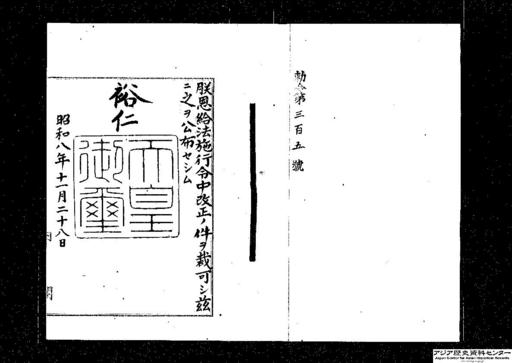 勅令第三百五號
朕恩給法施行令中改正ノ件ヲ裁可シ茲
ニ之ヲ公布セシム
裕仁
天皇
御璽
昭和八年十一月二十八日
内閣
アジア歴史資料センター
Japan Center for Asian Historical Records